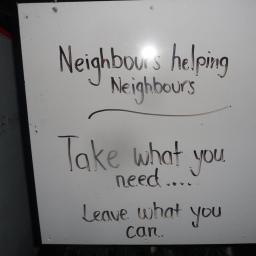 Neighbours helping
Neighbours
Take what you
need....
Leave what you
can.